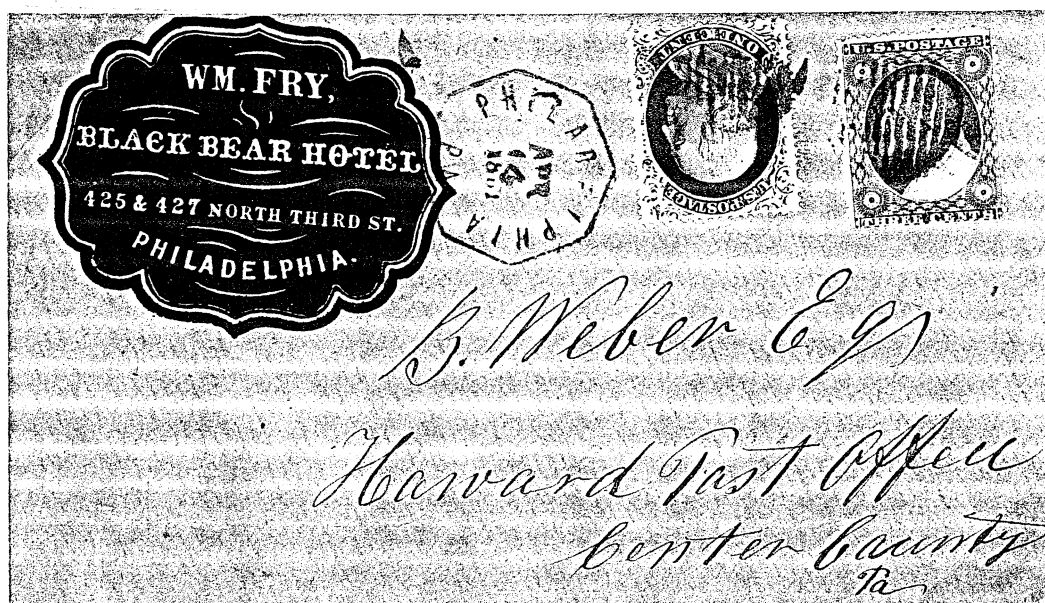 WM. FRY,
BLACK BEAR HOTEL
425 & 427 NORTH THIRD ST.
PHILADELPHIA.
PHILADELPHIA
PA
ONE CENT
U.S. POSTAGE
U.S. POSTAGE
THREE CENTS
B. Weber Eqs
Howard Post Offece
Center County
Pa